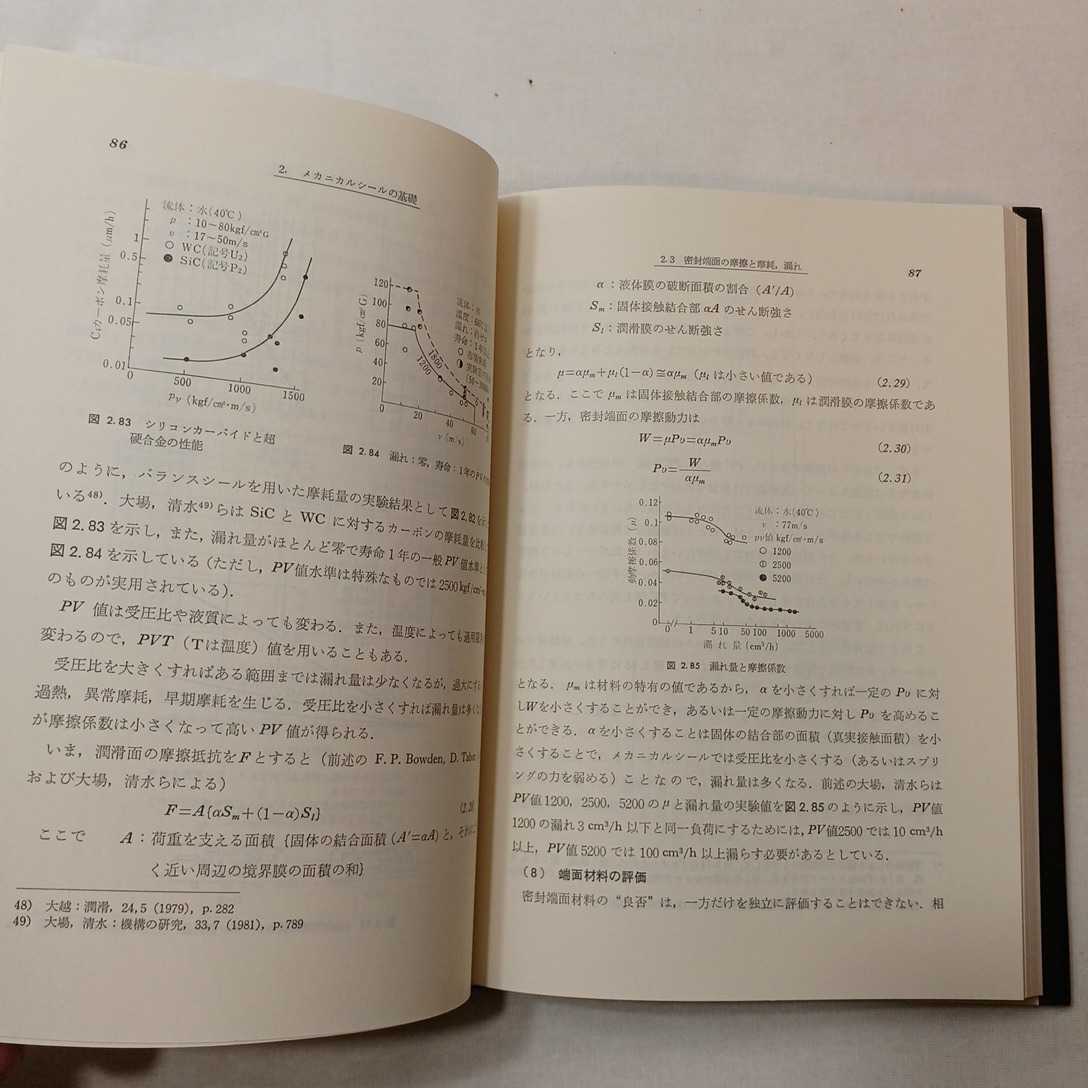 86
2. メカニカルシールの基礎
流体：水(40℃)
p ：10〜80kgf/cm²G
v ：17〜50m/s
○ WC(記号U₂)
● SiC(記号P₂)
C₆カーボン摩耗量 (μm/h)
1
0.5
0.1
0.05
0.01
0
500
1000
1500
pv (kgf/cm²·m/s)
図 2.83 シリコンカーバイドと超
硬合金の性能
p (kgf/cm²G)
120
100
80
60
40
20
0
20
40
60
v (m/s)
1800
1200
流体：
温度：
漏れ：
寿命：
図 2.84 漏れ：零，寿命：1年の
のように，バランスシールを用いた摩耗量の実験結果として図2.82を
いる⁴⁸⁾．大場，清水⁴⁹⁾らは SiC と WC に対するカーボンの摩耗量を
図 2.83 を示し，また，漏れ量がほとんど零で寿命 1 年の一般 PV 値水準
図 2.84 を示している（ただし，PV値水準は特殊なものでは 2500 kgf/cm²·
のものが実用されている）．
PV 値は受圧比や液質によっても変わる．また，温度によっても
変わるので，PVT（Tは温度）値を用いることもある．
受圧比を大きくすればある範囲までは漏れ量は少なくなるが，過大に
過熱，異常摩耗，早期摩耗を生じる．受圧比を小さくすれば漏れ量は多く
が摩擦係数は小さくなって高い PV 値が得られる．
いま，潤滑面の摩擦抵抗をFとすると（前述の F. P. Bowden, D. Tabor
および大場，清水らによる）
F＝A{αSm＋(1−α)Sl}
ここで A：荷重を支える面積 {固体の結合面積 (A′=αA) と，
く近い周辺の境界膜の面積の和}
48) 大越：潤滑，24, 5 (1979), p. 282
49) 大場，清水：機構の研究，33, 7 (1981), p. 789
2.3 密封端面の摩擦と摩耗，漏れ
87
α：液体膜の破断面積の割合 (A′/A)
Sm：固体接触結合部 αA のせん断強さ
Sl：潤滑膜のせん断強さ
となり，
μ＝αμm＋μl(1−α)≅αμm (μl は小さい値である) (2.29)
となる．ここで μm は固体接触結合部の摩擦係数，μl は潤滑膜の摩擦係数であ
る．一方，密封端面の摩擦動力は
W＝μPv＝αμmPv (2.30)
Pv＝W/αμm (2.31)
流体：水(40℃)
v ：77m/s
pv値 kgf/cm²·m/s
1200
2500
5200
動摩擦係数 (μ)
0.12
0.1
0.08
0.06
0.04
0.02
0
0
1
5
10
50
100
1000
5000
漏れ量(cm³/h)
図 2.85 漏れ量と摩擦係数
となる．μm は材料の特有の値であるから，α を小さくすれば一定の Pv に対
しWを小さくすることができ，あるいは一定の摩擦動力に対し Pv を高めるこ
とができる．α を小さくすることは固体の結合部の面積（真実接触面積）を小
さくすることで，メカニカルシールでは受圧比を小さくする（あるいはスプリ
ングの力を弱める）ことなので，漏れ量は多くなる．前述の大場，清水らは
PV値1200，2500，5200のμと漏れ量の実験値を図2.85のように示し，PV値
1200 の漏れ 3 cm³/h 以下と同一負荷にするためには，PV値2500 では 10 cm³/h
以上，PV値 5200 では 100 cm³/h 以上漏らす必要があるとしている．
（8） 端面材料の評価
密封端面材料の“良否”は，一方だけを独立に評価することはできない．相